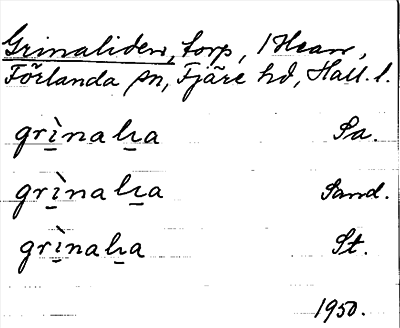 Grinaliden, torp, 1 Hean,
Förlanda sn, Fjäre hd, Hall. l.
grìnalıa Sa.
grìnalıa Sand.
grìnalıa St.
1950.